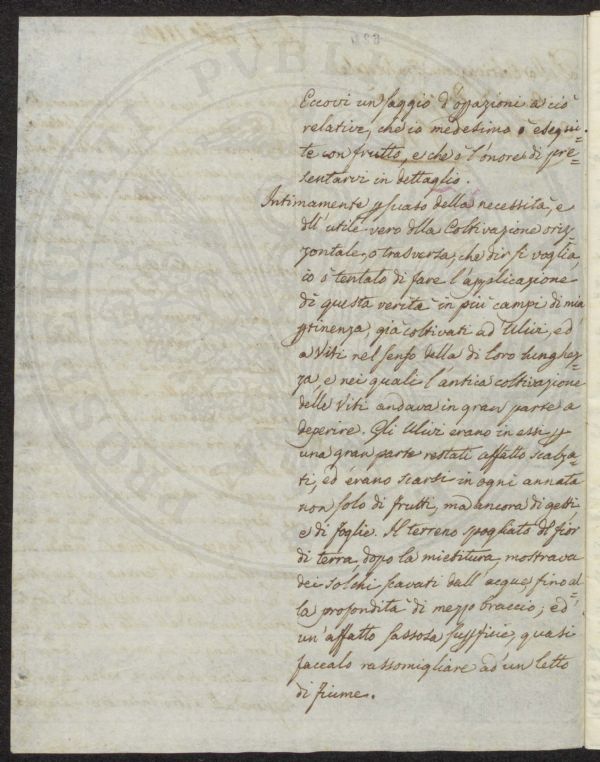 Eccovi un saggio d'opazioni a ciò
relative, che io medesimo ò esegui=
te con frutto, e che ò l'onore di pre=
sentarvi in dettaglio.
Intimamente psuaso della necessità, e
dll'utile vero dlla Coltivazione oriz=
zontale, o trasversa, che dir si voglia,
io ò tentato di fare l'applicazione
di questa verità in più campi di mia
ptinenza, già coltivati ad Ulivi, ed
a Viti nel senso della di loro lunghez=
za, e nei quali l'antica coltivazione
delle Viti andava in gran parte a
deperire. Gli Ulivi erano in essi p
una gran parte restati affatto scalza=
ti, ed erano scarsi in ogni annata
non solo di frutti, ma ancora di getti,
e di foglie. Il terreno spogliato dl fior
di terra, dopo la mietitura, mostrava
dei solchi scavati dall'acque fino al=
la profondità di mezzo braccio; ed
un'affatto sassosa supficie, quasi
facealo rassomigliare ad un letto
di fiume.